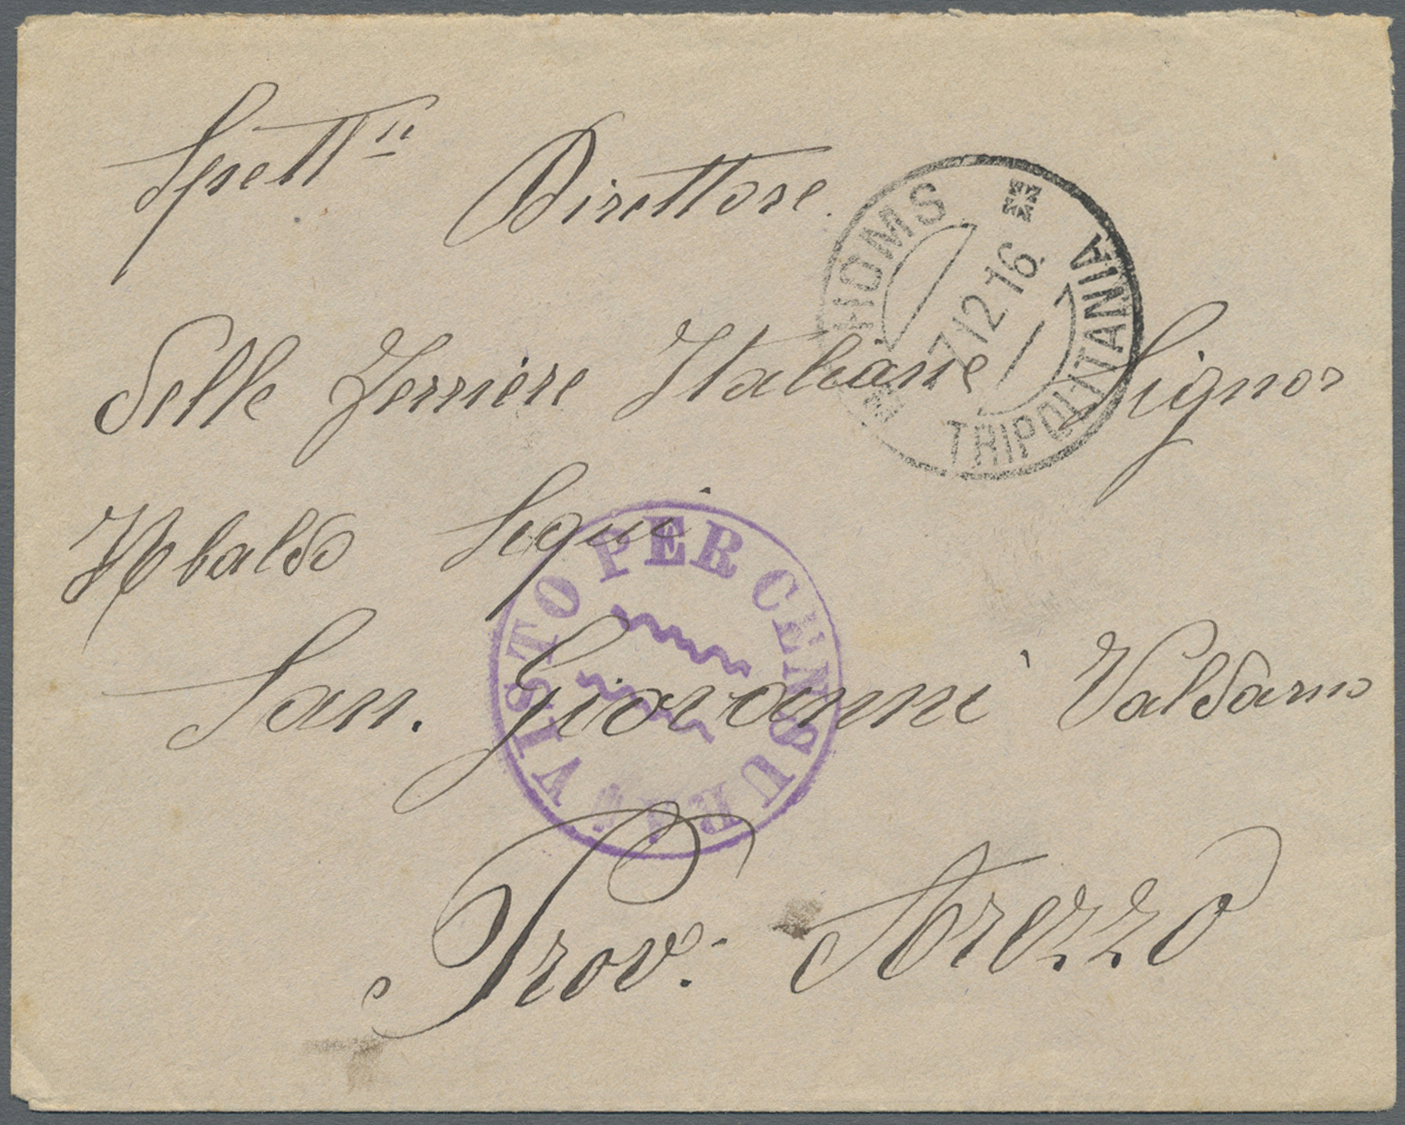 Spett.
Direttore
Delle Ferriere Italiane Signor
Ubaldo Segui
San. Giovanni Valdarno
Prov. Arezzo
HOMS
7 12 16
TRIPOLITANIA
VISTO PER CENSURA